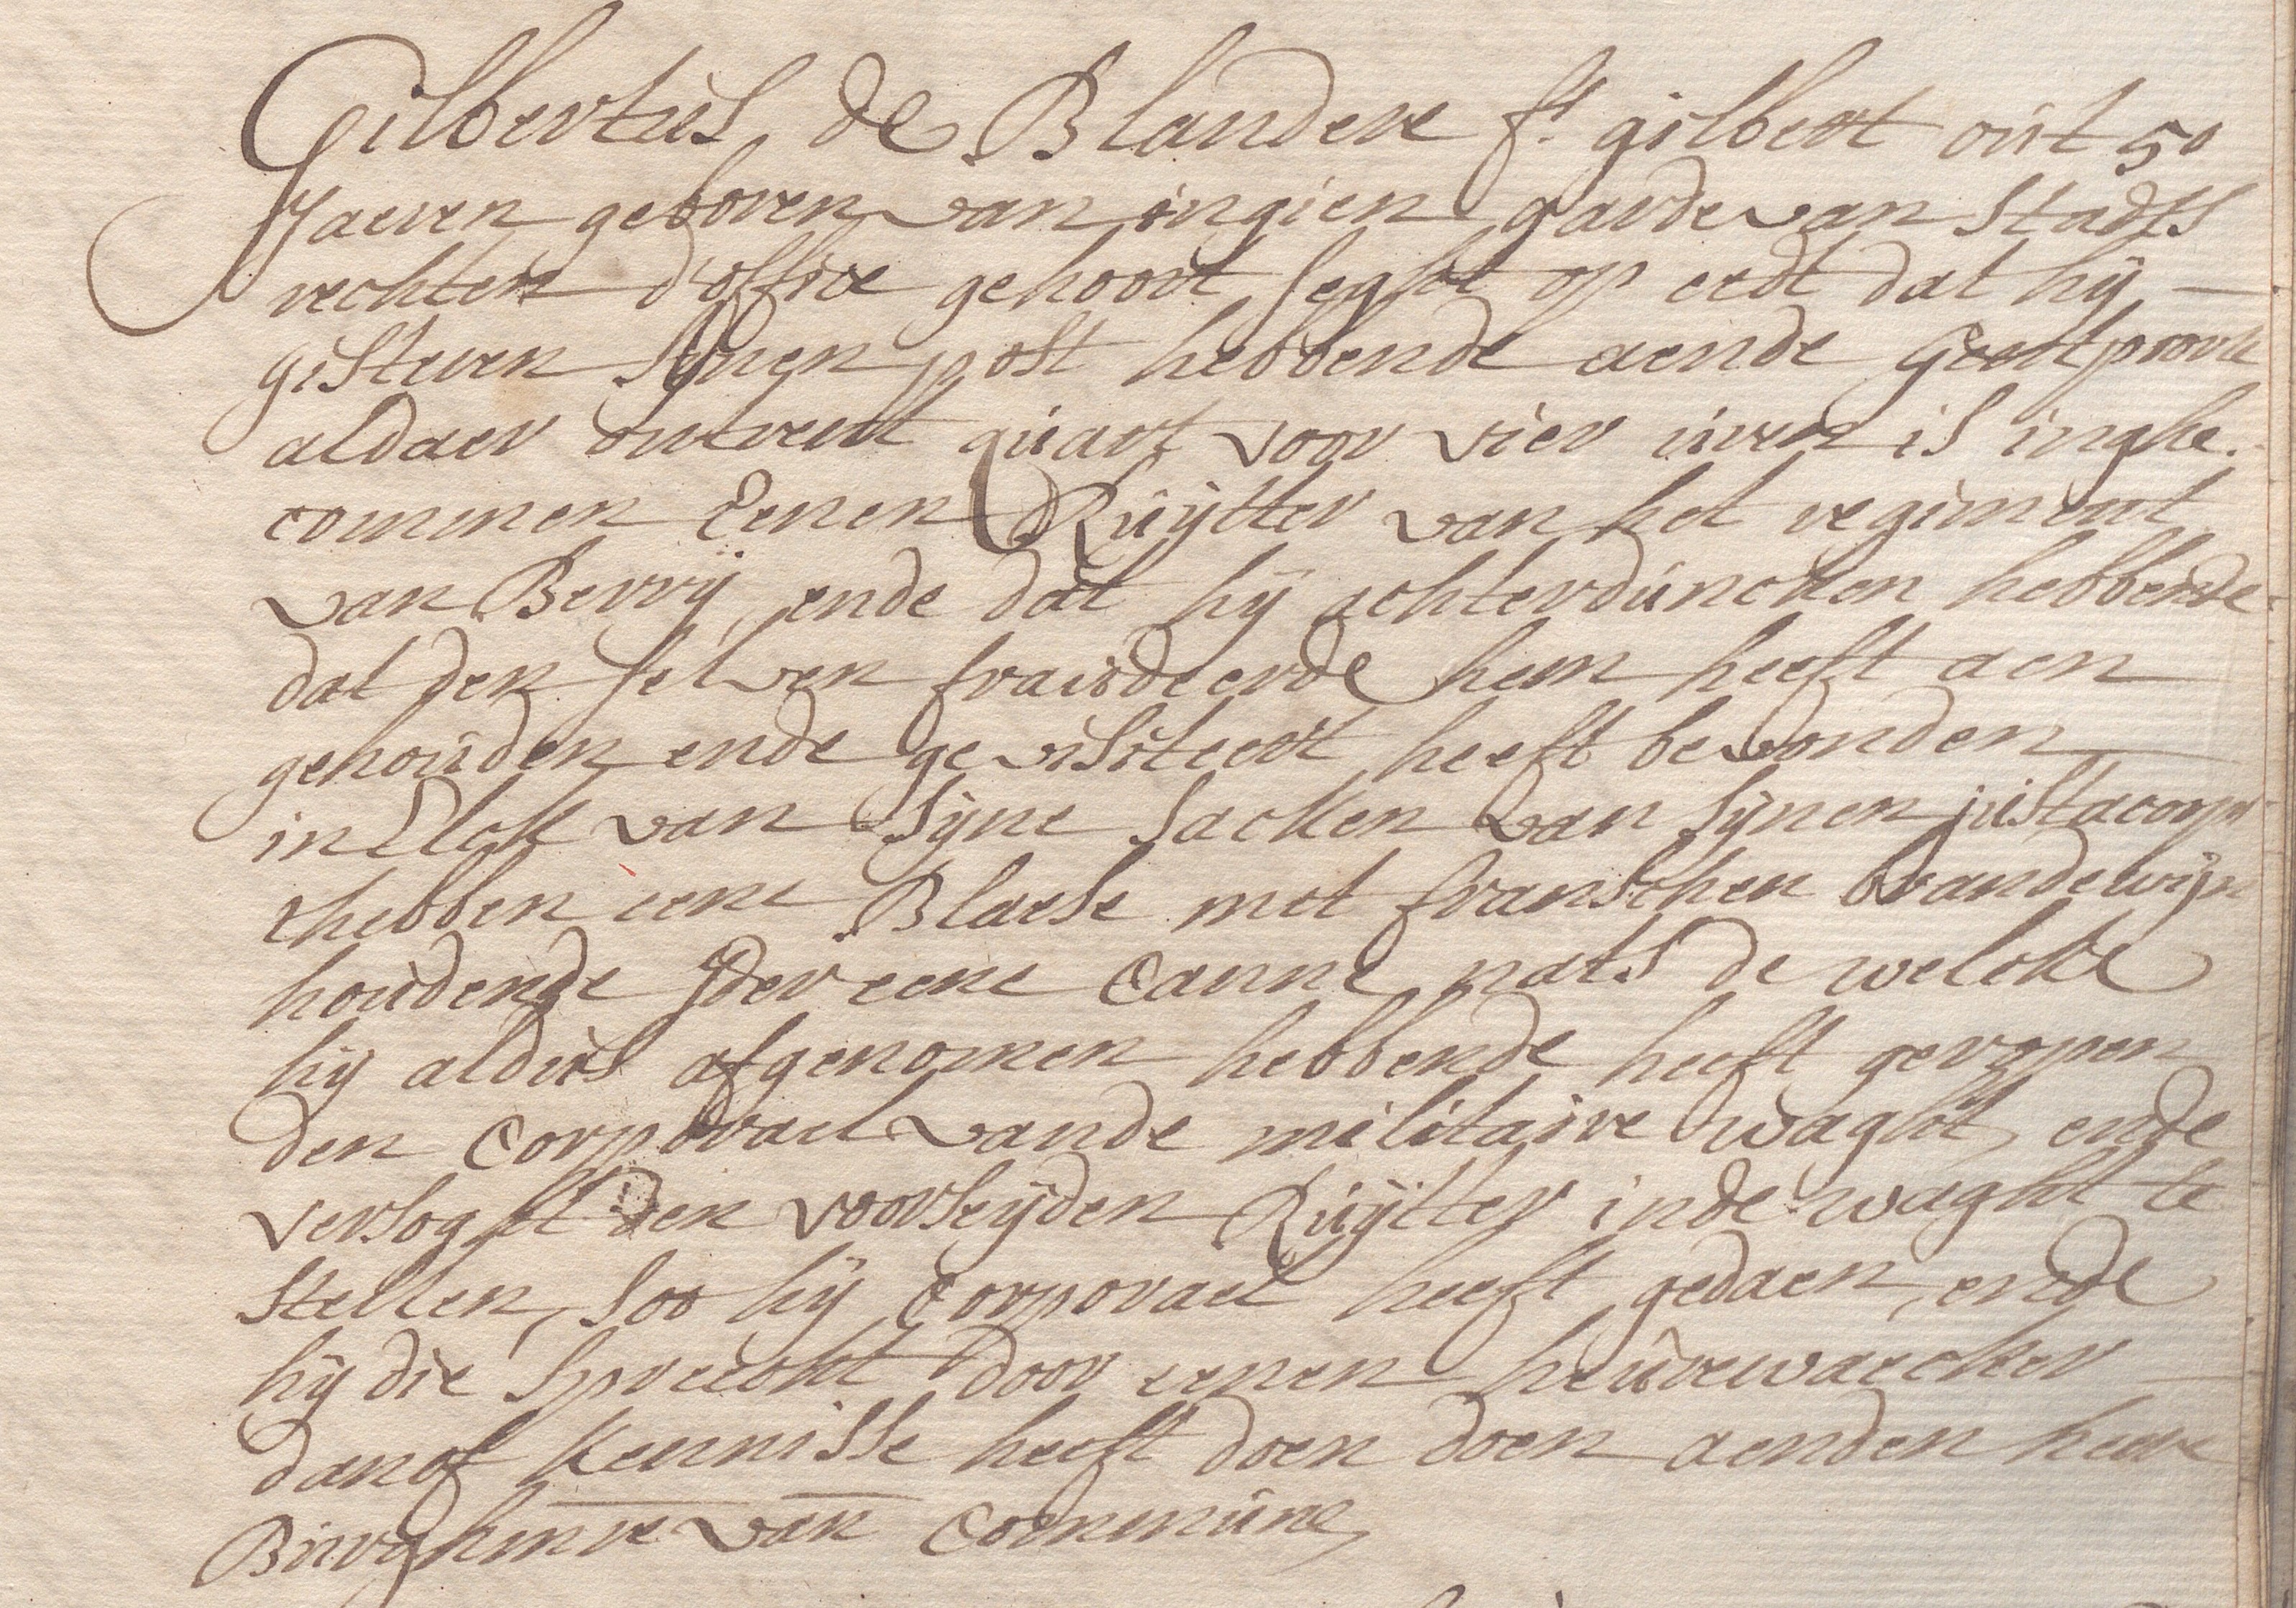 Gilbertus de Blandere fs. gilbert out 50
Jaeren geboren van ingien garde van Stadts
rechten d'office gehoort seght op eedt dat hij
gisteren synen post hebbende aende Gentpoorte
aldaer ontrent quart voor vier uren is inghe.
commen Eenen Ruÿtter van het regiment
van Berrÿ, ende dat hij achterduncken hebbende
dat den selven fraudeerde hem heeft aen
gehouden ende gevisiteert heeft bevonden
in Elck van Sijne Sacken van Sijnen justacorps
thebben eene Blaese met franschen brandewijn
houdende Jder eene Canne nats de welcke
hij aldus afgenomen hebbende heeft geropen
den Corporael vande militaire waght, ende
versoght den voorseÿden Ruÿtter inde waght te
Stellen, Soo hij Corporael heeft gedaen, ende
hij die Spreeckt door eenen heurewaecker
danof kennisse heeft doen doen aenden heer
Burghmre van Commune